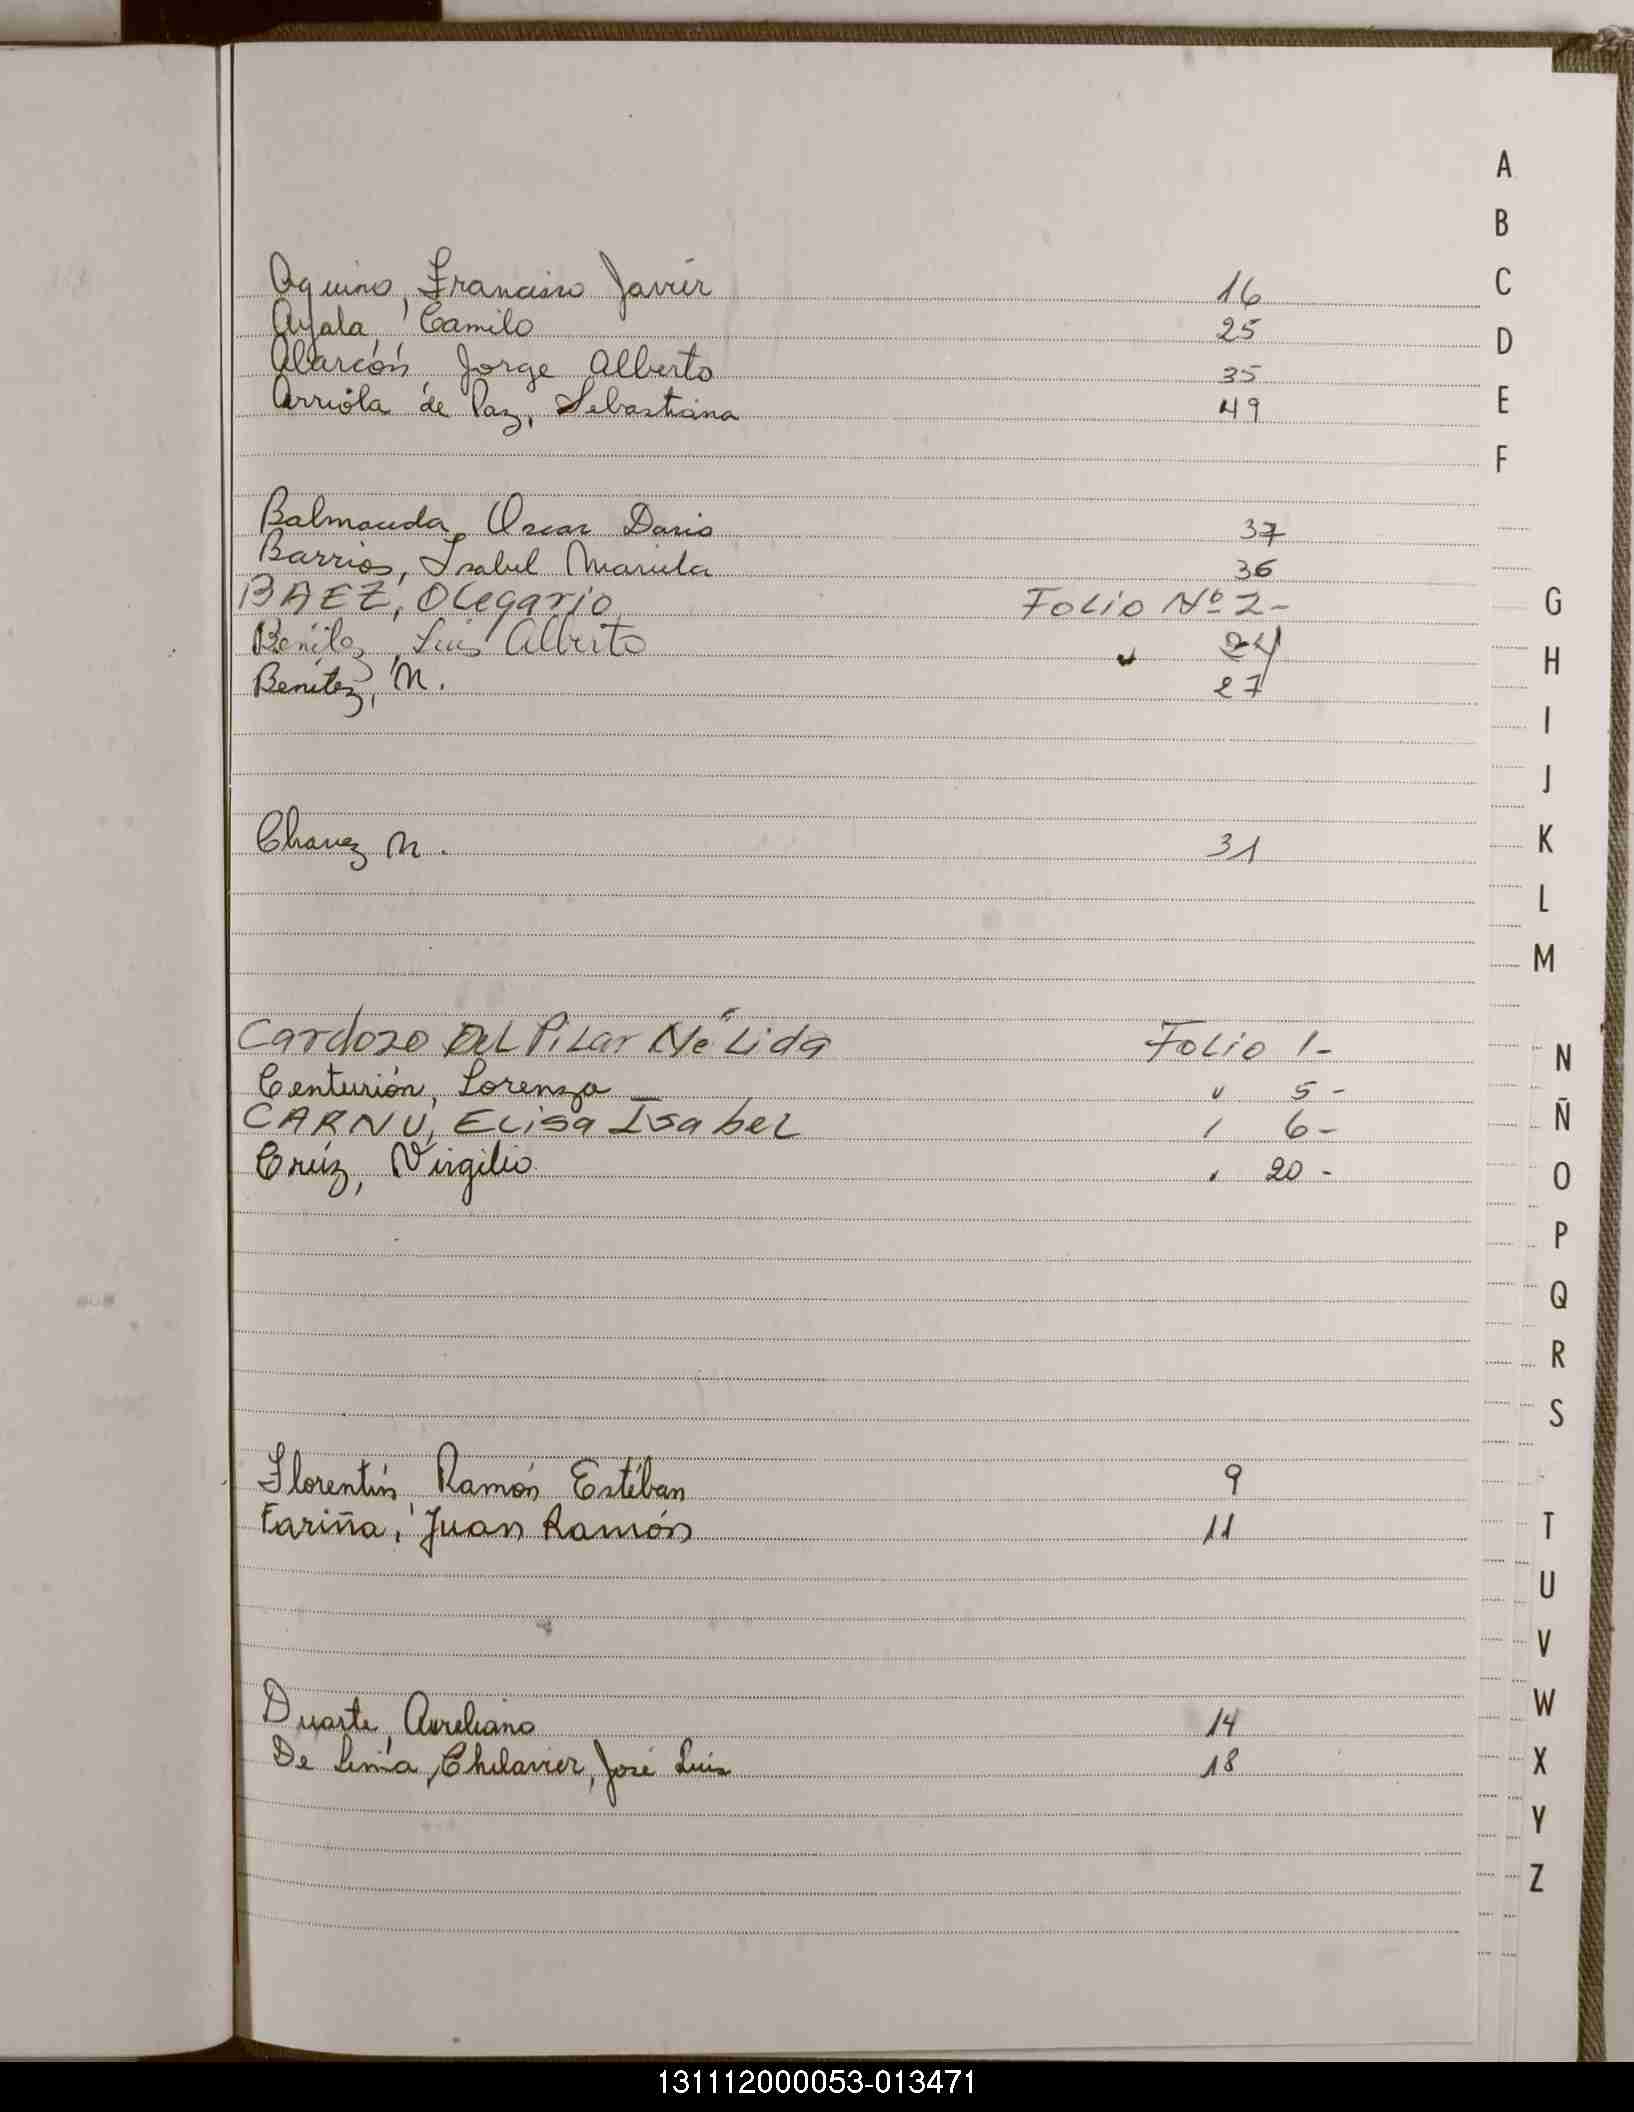 Aquino, Francisco Javier 16
Ayala, Camilo 25
Alarcón, Jorge Alberto 35
Arriola de Paz, Sebastiana 49
Balmaceda, Oscar Dario 37
Barrios, Isabel Mariela 36
BAEZ, Olegario Folio Nº 2-
Benítez, Luis Alberto " 24
Benítez, N. 27
Chavez N. 31
Cardozo Del Pilar Nélida Folio 1-
Centurión, Lorenzo " 5-
CARNU, Elisa Isabel " 6-
Crúz, Virgilio " 20-
Florentín, Ramón Estéban 9
Fariña, Juan Ramón 11
Duarte, Aureliano 14
De Lima, Chilavier, José Luis 18
A
B
C
D
E
F
G
H
I
J
K
L
M
N
Ñ
O
P
Q
R
S
T
U
V
W
X
Y
Z
131112000053-013471